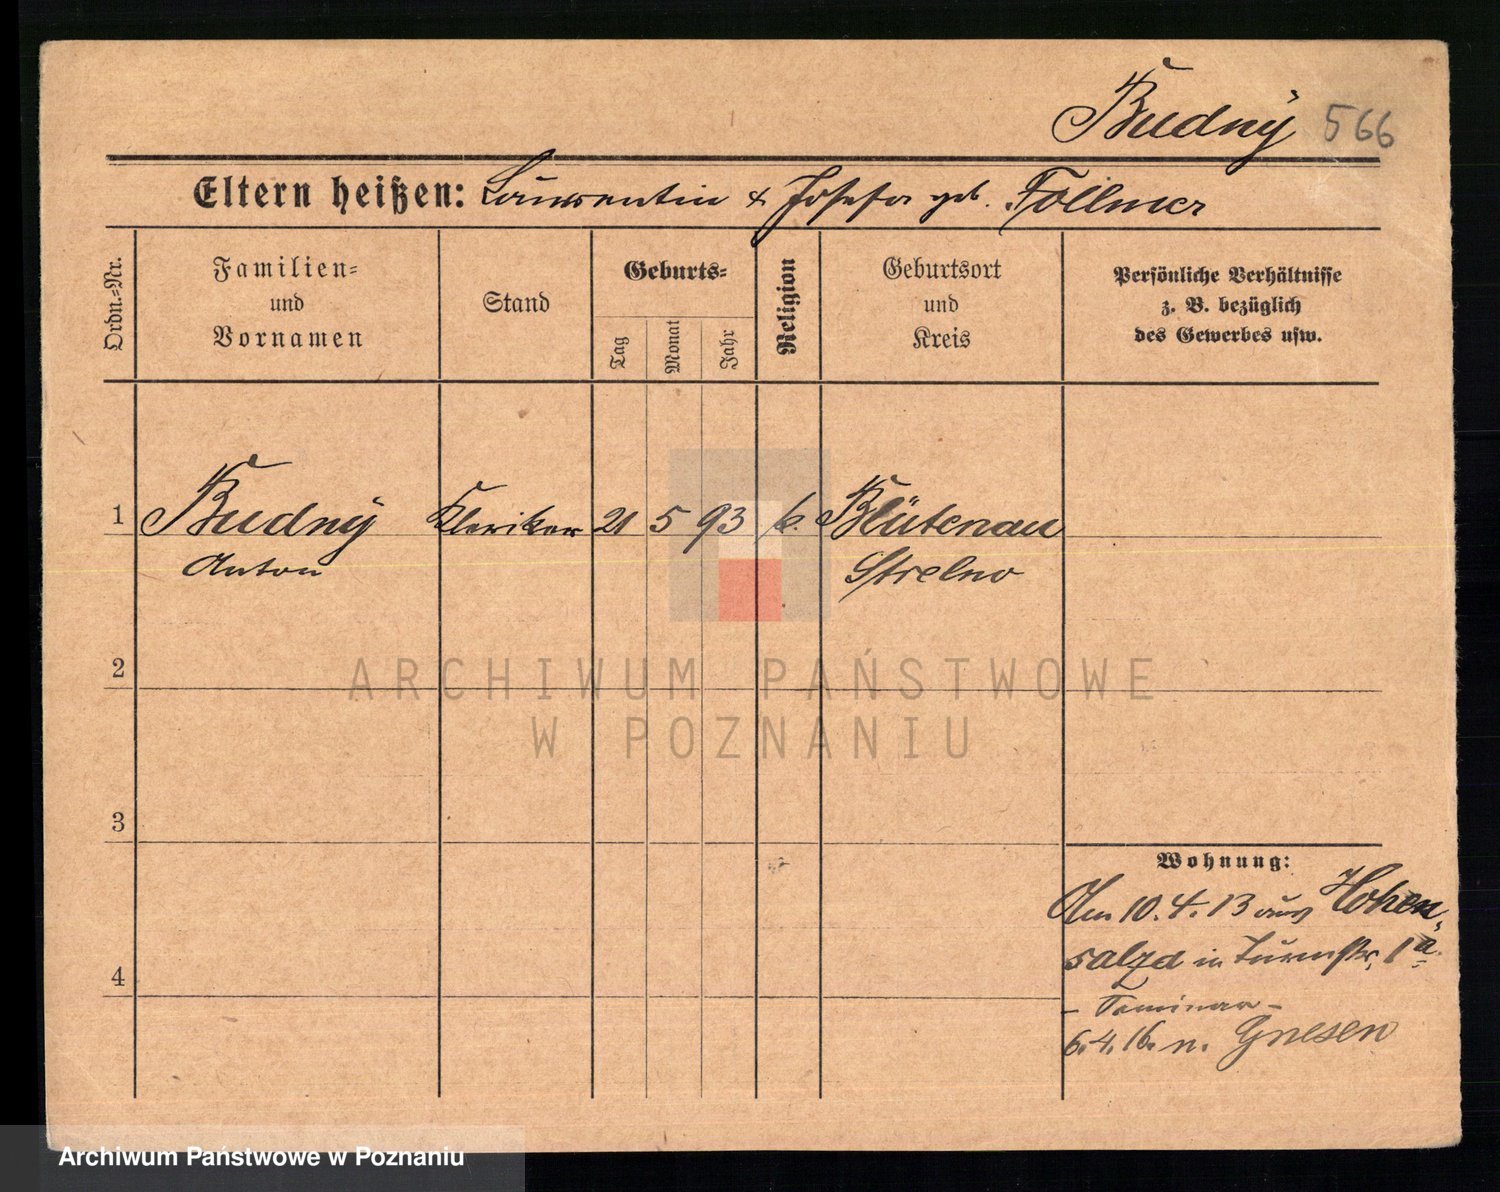 Budnÿ 566
Eltern heißen: Laurentin & Josefa geb. Follmer
Ordn.-Nr.
Familien-
und
Vornamen
Stand
Geburts-
Tag
Monat
Jahr
Religion
Geburtsort
und
Kreis
Persönliche Verhältnisse
z. B. bezüglich
des Gewerbes usw.
1 Budnÿ Kleriker 21 5 93 k. Blütenau
Anton Strelno
2
ARCHIWUM PAŃSTWOWE
W POZNANIU
3
Wohnung:
Am 10.4.13 aus Hohen-
salza in Turmstr. 1a
4
- Seminar -
6.4.16. n. Gnesen
Archiwum Państwowe w Poznaniu